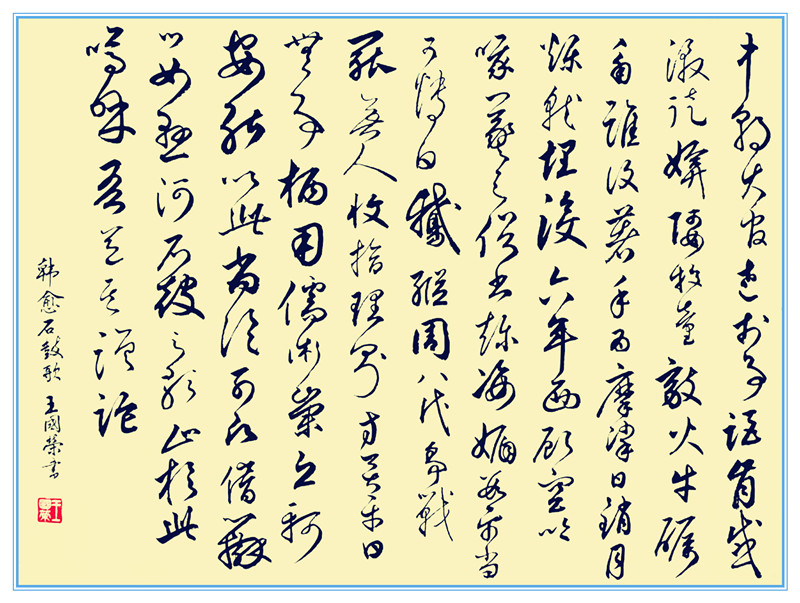 中朝大官老於事詎肯感
激徒媕婀牧童敲火牛礪
角誰復著手為摩挲日銷月
鑠就埋沒六年西顧空吟
哦羲之俗書趁姿媚數紙尚
可博白鵝繼周八代爭戰
罷無人收拾理則那方今太平日
無事柄用儒術崇丘軻
安能以此尚論列願借辯
口如懸河石鼓之歌止於此
嗚呼吾意其蹉跎
韩愈石鼓歌 王國榮書